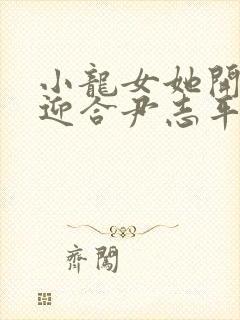 小龍女她開
迎合尹志平
齊闖